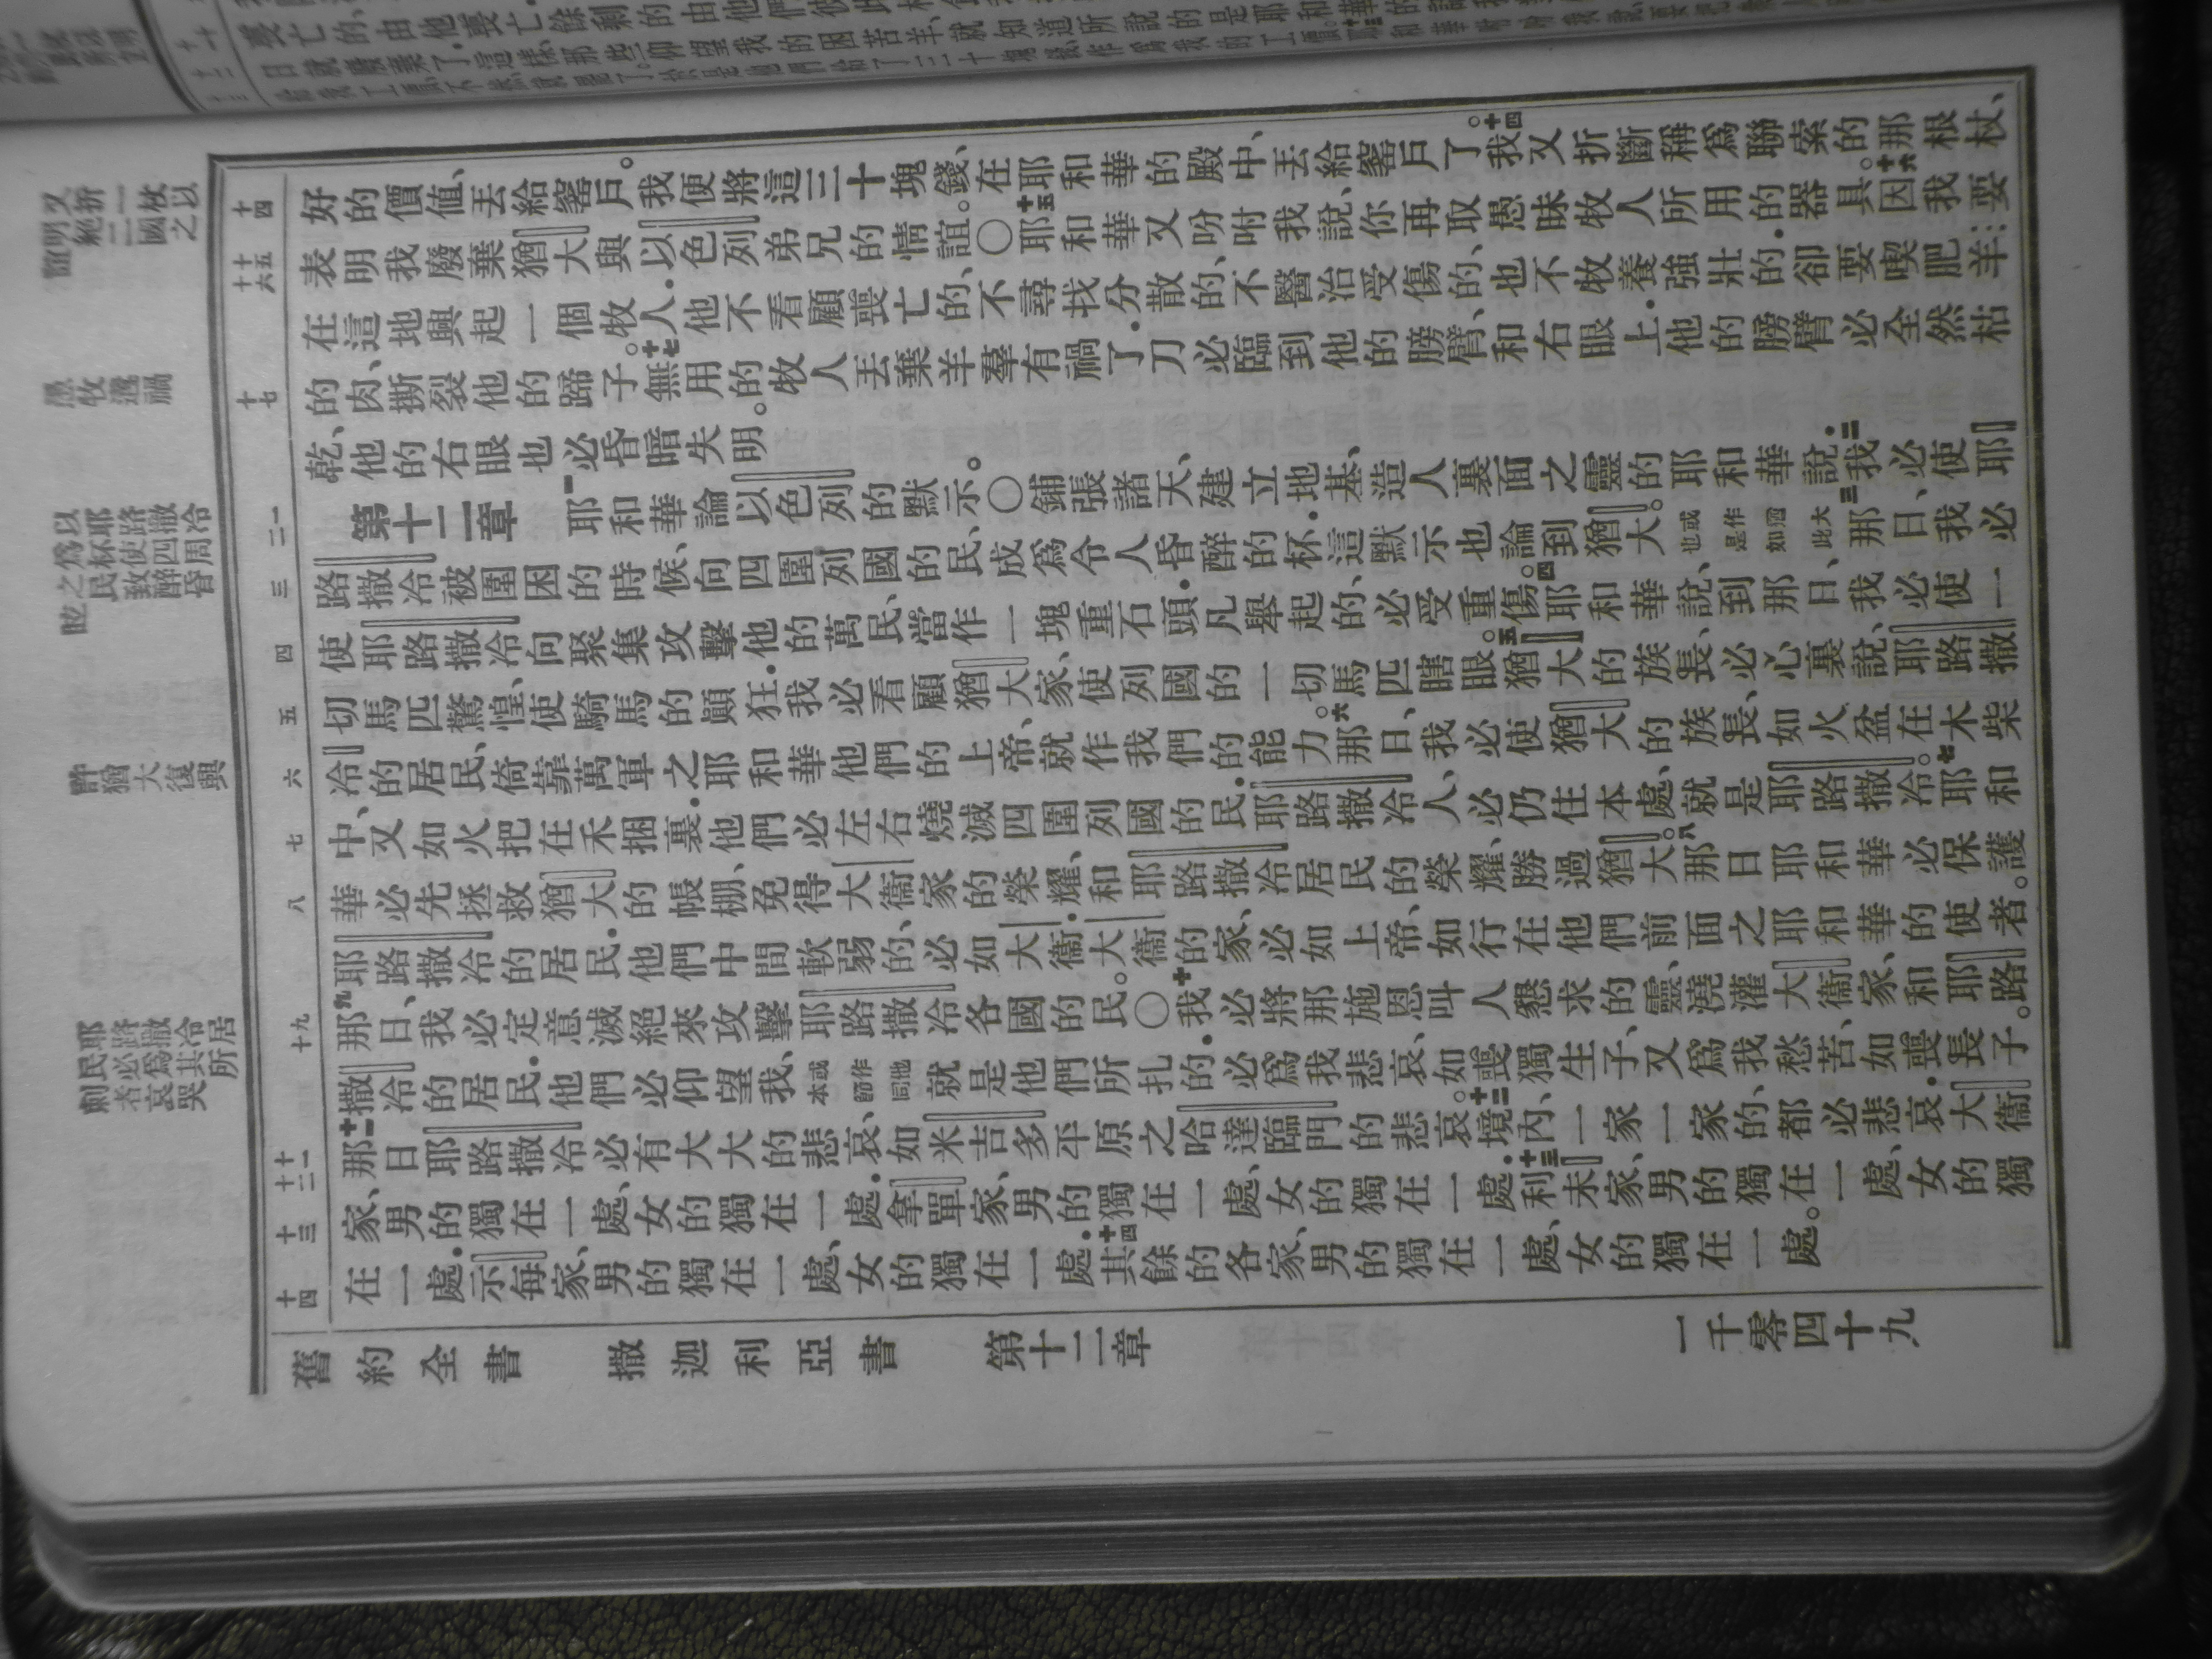 又折一杖以
明絕二國之
誼
愚牧遭禍
以耶路撒冷
爲杯使四周
之民致醉昏
眩
許猶大復興
耶路撒冷居
民必爲其所
刺者哀哭
十四
十五
十六
十七
一
二
三
四
五
六
七
八
九
十
十一
十二
十三
十四
好的價值、丟給窰戶。我便將這三十塊錢、在耶和華的殿中、丟給窰戶了。十四我又折斷稱爲聯索的那根杖、
表明我廢棄猶大與以色列弟兄的情誼。〇十五耶和華又吩咐我說、你再取愚昧牧人所用的器具。十六因我要
在這地興起一個牧人.他不看顧喪亡的、不尋找分散的、不醫治受傷的、也不牧養強壯的.卻要喫肥羊
的肉、撕裂他的蹄子。十七無用的牧人丟棄羊羣有禍了.刀必臨到他的膀臂、和右眼上.他的膀臂必全然枯
乾、他的右眼也必昏暗失明。
第十二章 一耶和華論以色列的默示。〇鋪張諸天、建立地基、造人裏面之靈的耶和華說.二我必使耶
路撒冷被圍困的時候、向四圍列國的民、成爲令人昏醉的杯.這默示也論到猶大。或作猶大也是如此三那日、我必
使耶路撒冷向聚集攻擊他的萬民、當作一塊重石頭.凡舉起的、必受重傷。四耶和華說、到那日、我必使一
切馬匹驚惶、使騎馬的顚狂.我必看顧猶大家、使列國的一切馬匹瞎眼。五猶大的族長、必心裏說、耶路撒
冷的居民、倚靠萬軍之耶和華他們的上帝、就作我們的能力。六那日、我必使猶大的族長、如火盆在木柴
中、又如火把在禾捆裏.他們必左右燒滅四圍列國的民.耶路撒冷人、必仍住本處、就是耶路撒冷。七耶和
華必先拯救猶大的帳棚、免得大衞家的榮耀、和耶路撒冷居民的榮耀、勝過猶大。八那日耶和華必保護
耶路撒冷的居民.他們中間軟弱的、必如大衞.大衞的家、必如上帝、如行在他們前面之耶和華的使者。
九那日、我必定意滅絕來攻擊耶路撒冷各國的民。〇十我必將那施恩叫人懇求的靈、澆灌大衞家、和耶路
撒冷的居民.他們必仰望我、或作他本節同就是他們所扎的.必爲我悲哀、如喪獨生子、又爲我愁苦、如喪長子。
十一那日耶路撒冷必有大大的悲哀、如米吉多平原之哈達臨門的悲哀。十二境內、一家一家的、都必悲哀.大衞
家、男的獨在一處、女的獨在一處.拿單家、男的獨在一處、女的獨在一處.十三利未家、男的獨在一處、女的獨
在一處.示每家、男的獨在一處、女的獨在一處.十四其餘的各家、男的獨在一處、女的獨在一處。
舊約全書 撒迦利亞書 第十二章 一千零四十九